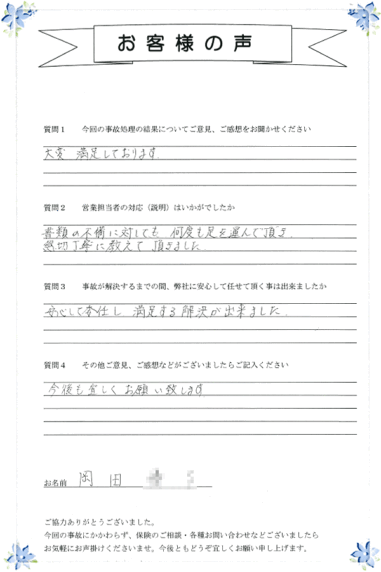 お客様の声
質問1 今回の事故処理の結果についてご意見、ご感想をお聞かせください
大変 満足しております
質問2 営業担当者の対応(説明)はいかがでしたか
書類の不備に対しても 何度も足を運んで頂き
懇切丁寧に教えて 頂きました
質問3 事故が解決するまでの間、弊社に安心して任せて頂く事は出来ましたか
安心してお任し 満足する解決が出来ました.
質問4 その他ご意見、ご感想などがございましたらご記入ください
今後も宜しくお願い致します
お名前 岡田
ご協力ありがとうございました。
今回の事故にかかわらず、保険のご相談・各種お問い合わせなどございましたら
お気軽にお声掛けくださいませ。今後ともどうぞ宜しくお願い申し上げます。